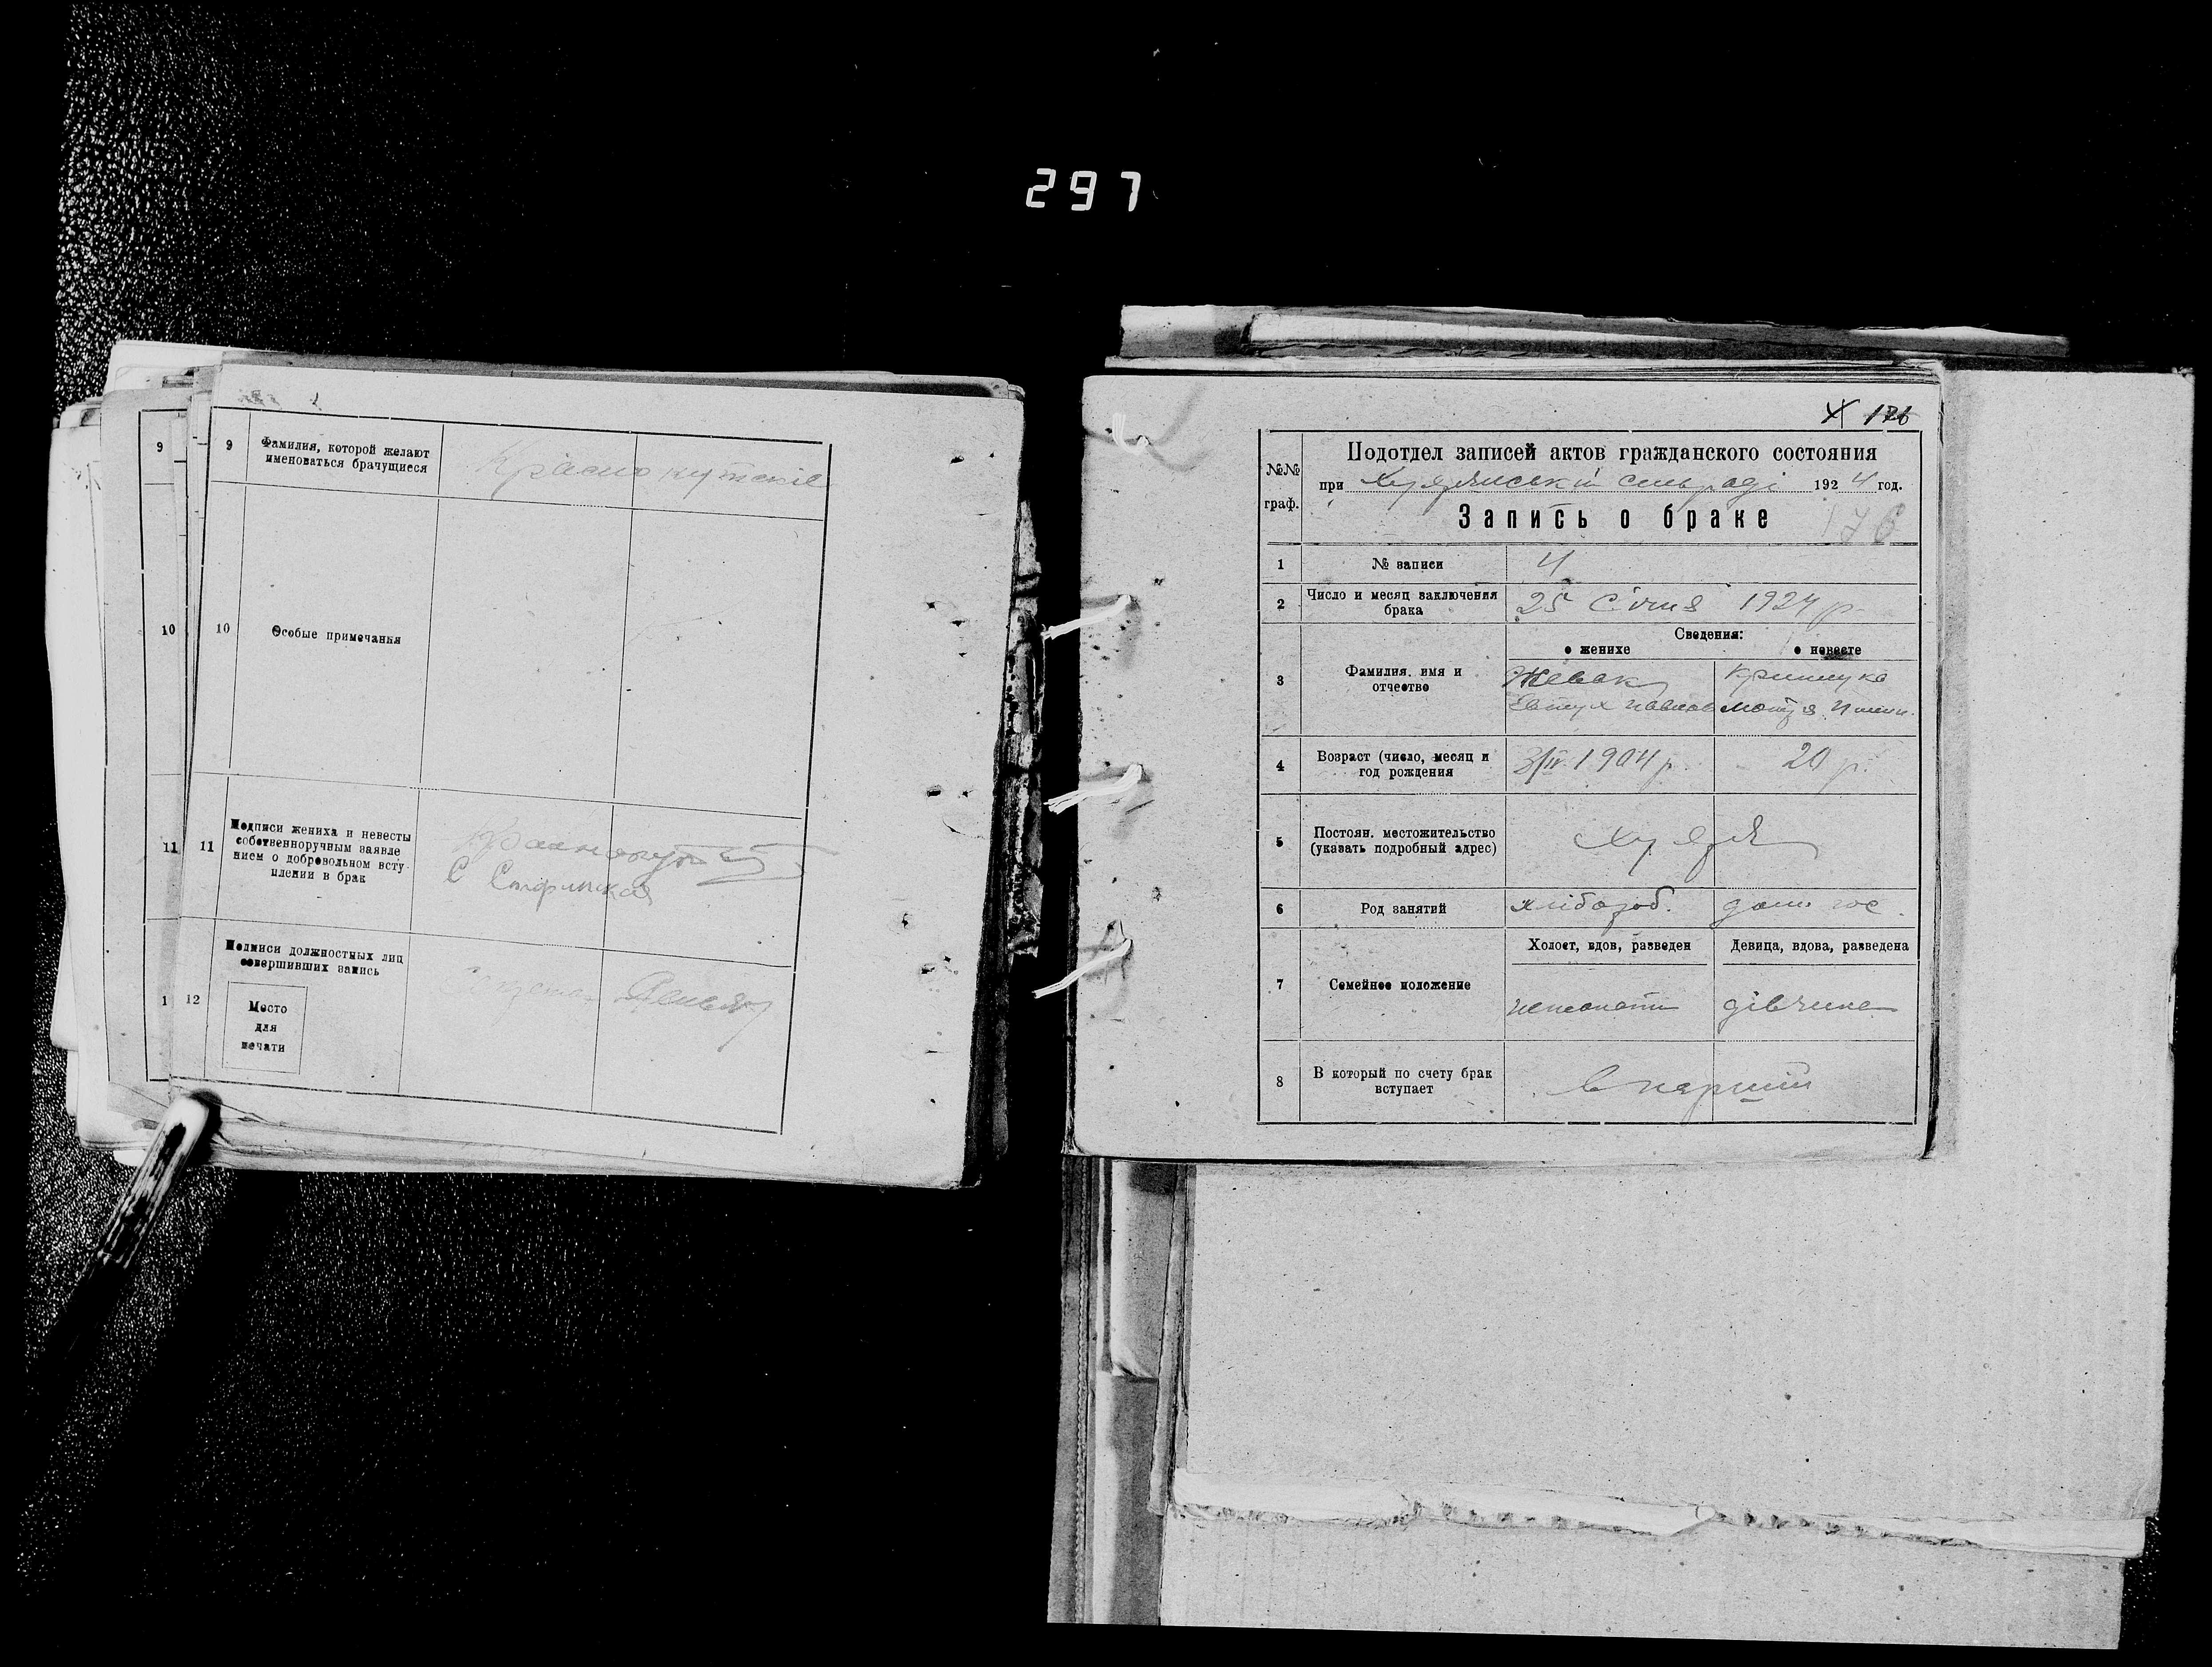 297
9
9
Фамилия, которой желают
именоваться брачущиеся
Краснокутские
10
10
Особые примечания
11
11
Подписи жениха и невесты
собственноручным заявле
нием о добровольном всту-
плении в брак
С
1
12
Подписи должностных лиц
совершивших запись
Место
для
печати
176
№№
граф.
Подотдел записей актов гражданского состояния
при Худяківській сільраді 1924 год.
Запись о браке
176
1
№ записи
4
2
Число и месяц заключения
брака
25 Січня 1924 р
Сведения:
о женихе
о невесте
3
Фамилия. имя и
отчество
Жевак
Евтух Павлов
Мотря
4
Возраст (число, месяц и
год рождения
3/IV 1904 р.
20 р.
5
Постоян. местожительство
(указать подробный адрес)
6
Род занятий
хлібороб.
дом. гос.
7
Семейное положение
Холост, вдов, разведен
Девица, вдова, разведена
нежонатий
дівчина
8
В который по счету брак
вступает
в перший